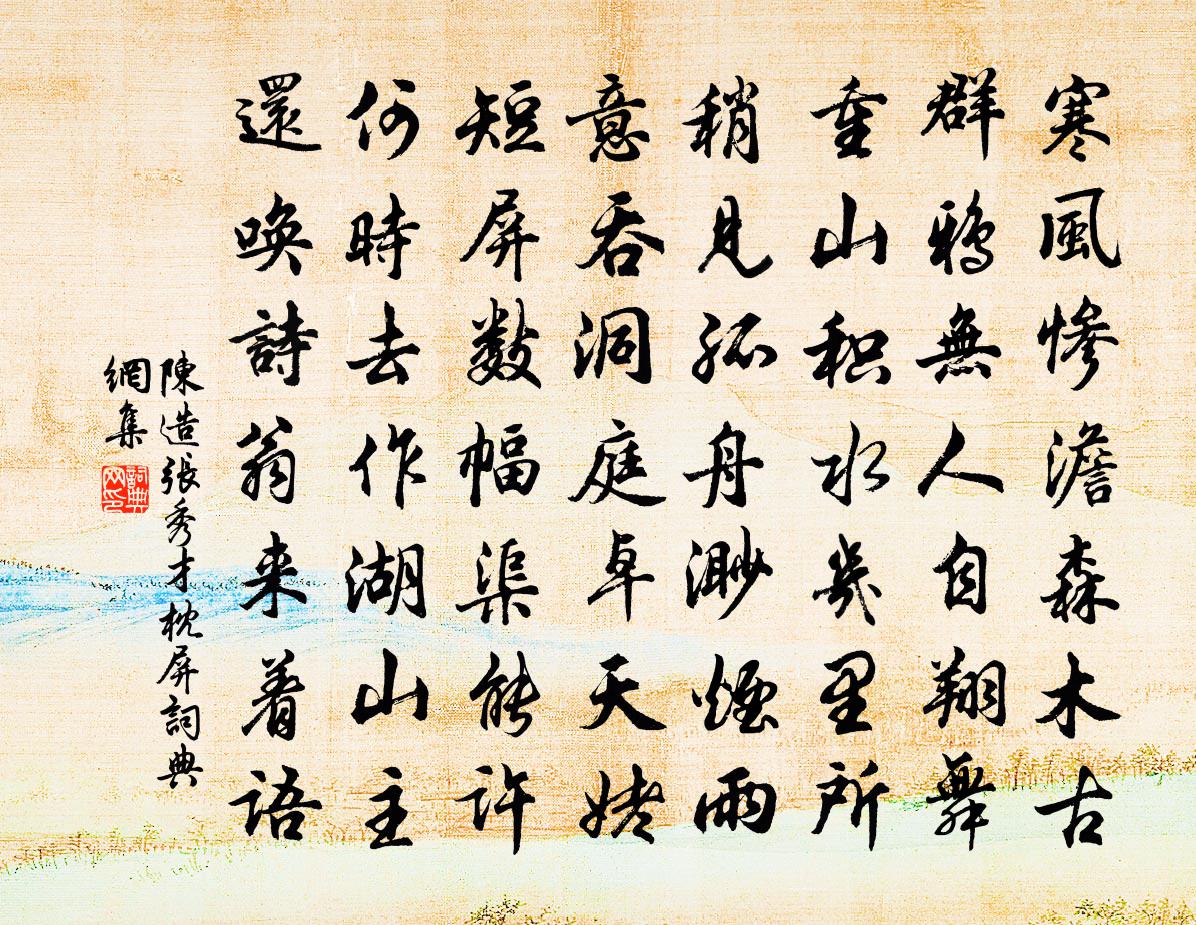 寒風慘澹森木古
群鴉無人自翔舞
重山积水幾里所
稍見孤舟渺煙雨
意吞洞庭卓天姥
短屏數幅渠能許
何時去作湖山主
還喚詩翁来着語
陳造張秀才枕屏詞典
網集
詞典网印